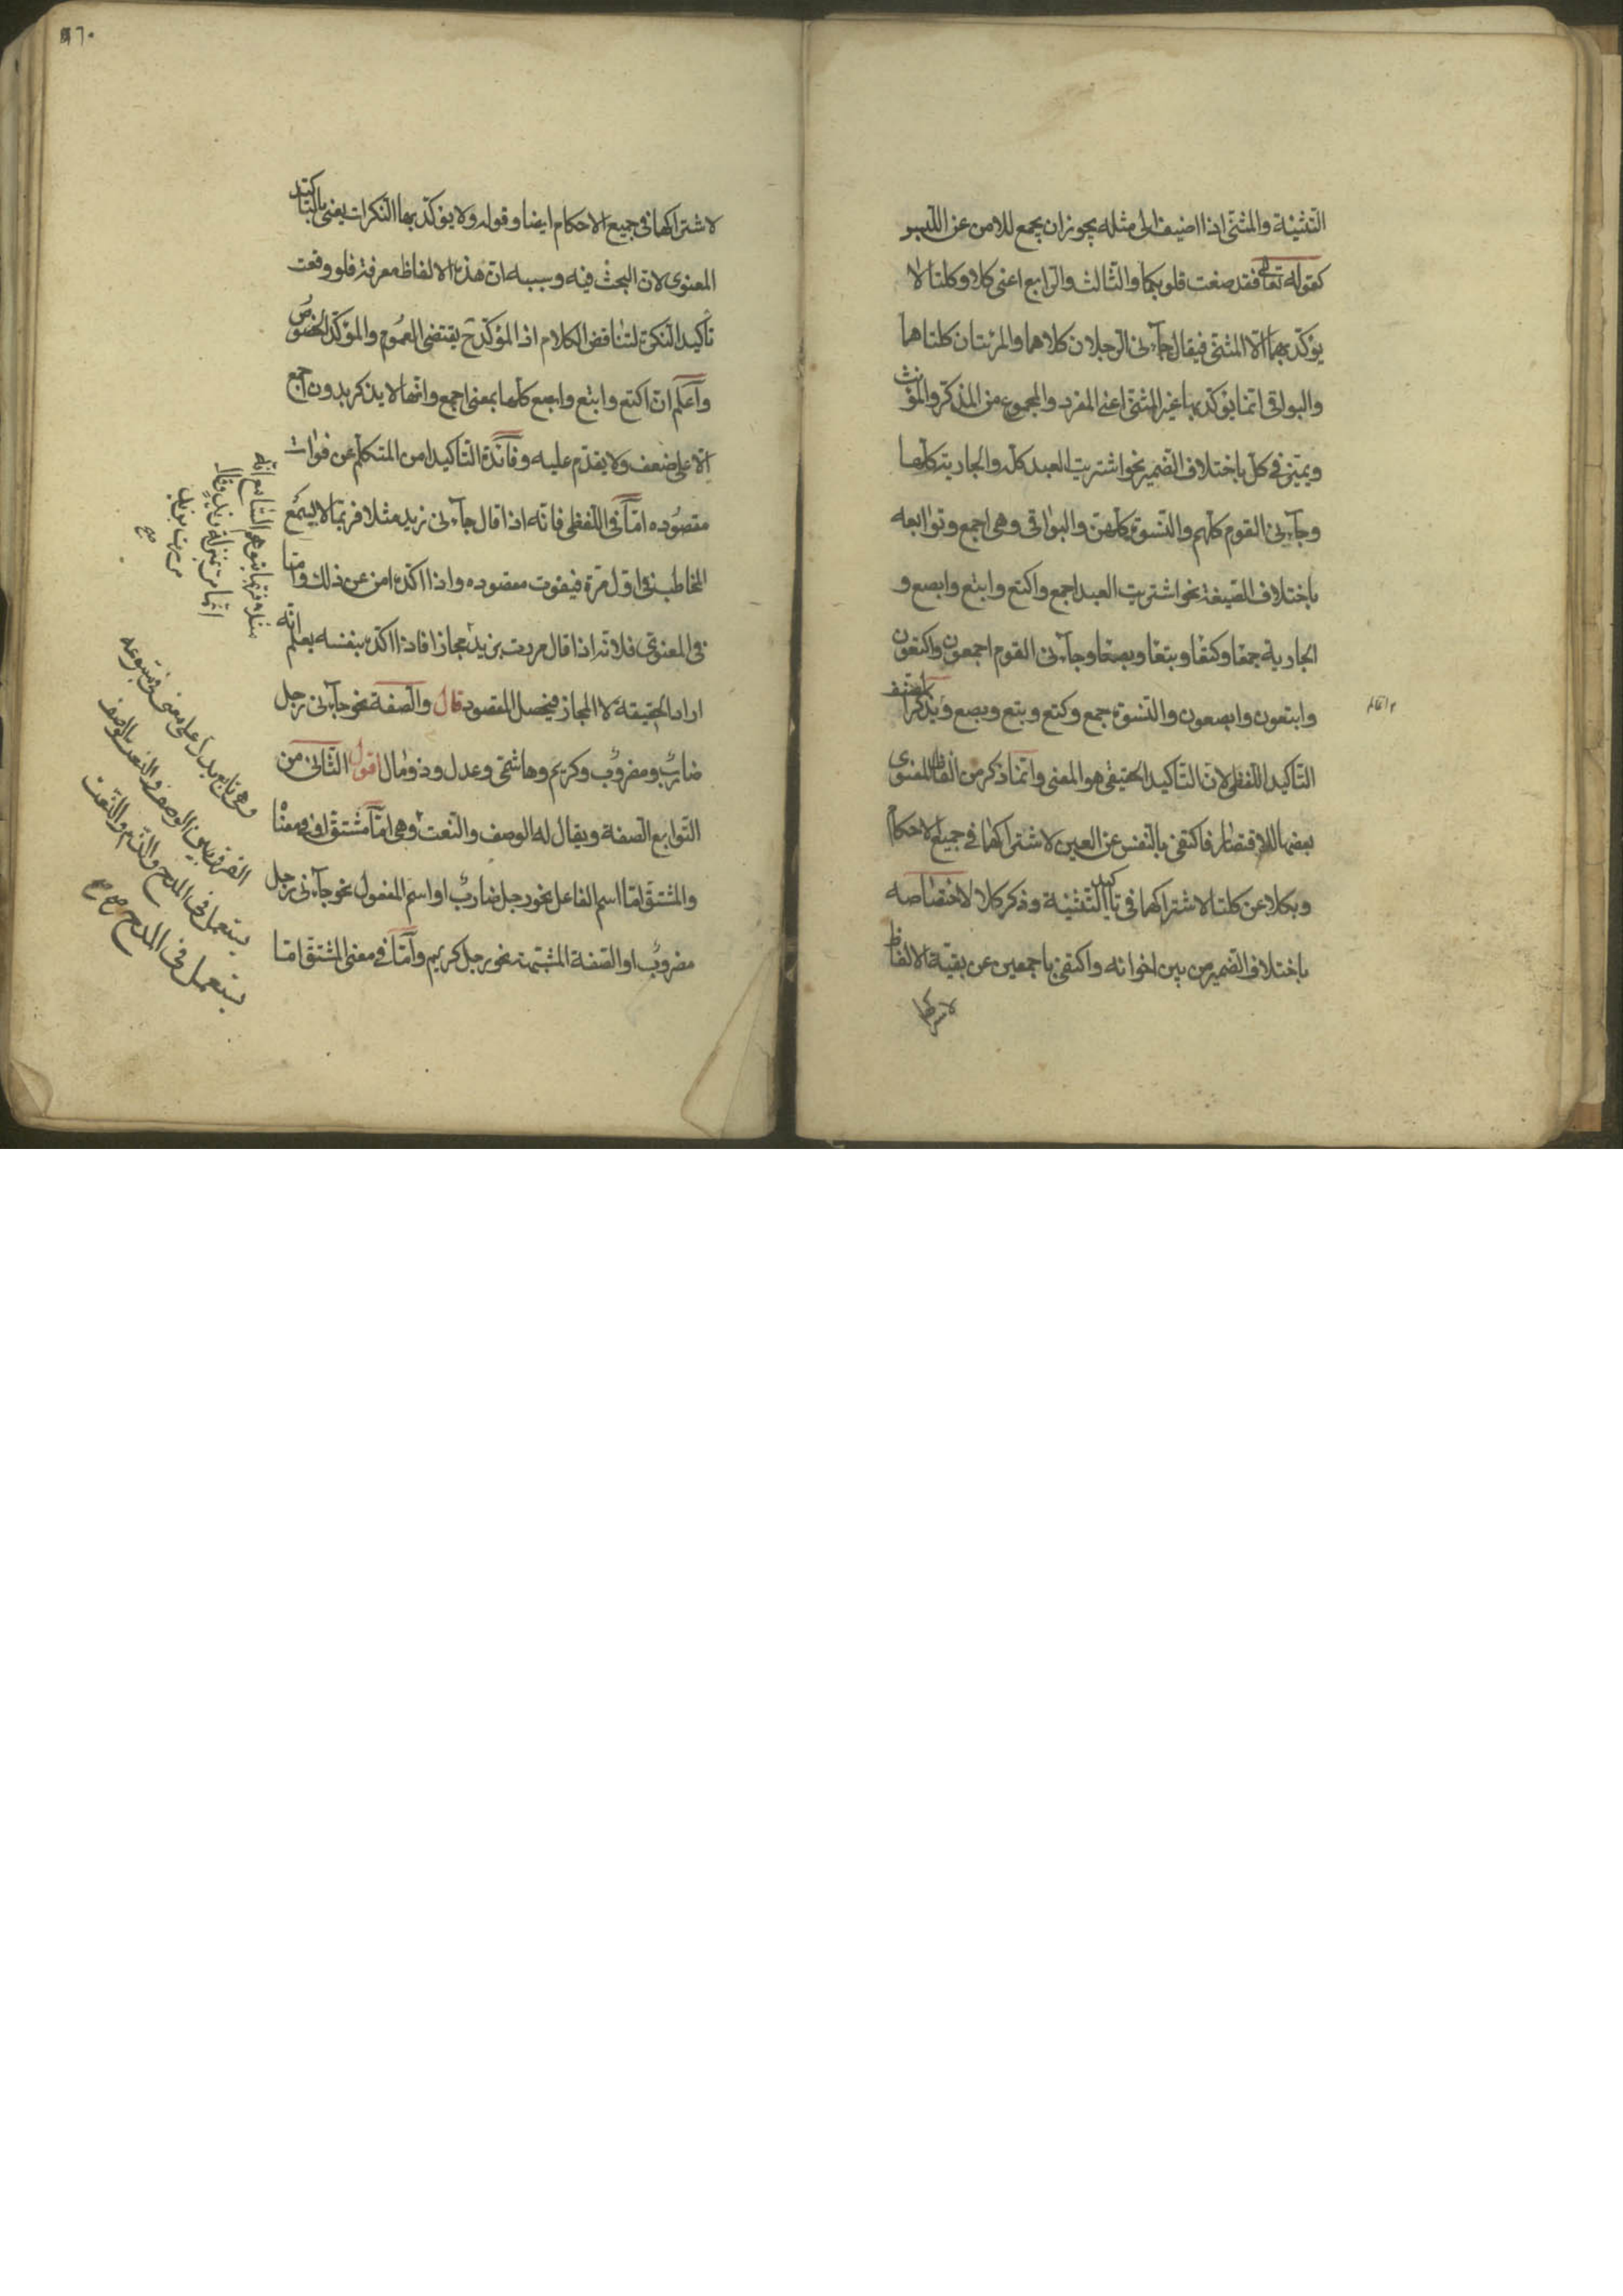 التثنية والمثنى اذا اضيف الى مثله يجوز ان يجمع للامن عن اللبس
كقوله تعالى فقد صغت قلوبكما والثالث والرابع اعنى كلا وكلتا لا
يؤكد بهما الا المثنى فيقال جآءنى الرجلان كلاهما والمرئتان كلتاهما
والبواقى انما يؤكد بها غير المثنى اعنى المفرد والمجموع من المذكر والمؤنث
ويميز فى كل باختلاف الضمير نحو اشتريت العبد كله والجارية كلها
وجآءنى القوم كلهم والنسوة كلهن والبواقى وهى اجمع وتوابعه
باختلاف الصيغة نحو اشتريت العبد اجمع واكتع وابتع وابصع و
الجارية جمعا وكتعا وبتعا وبصعا وجآءنى القوم اجمعون واكتعون
وابتعون وابصعون والنسوة جمع وكتع وبتع وبصع ويذكر المصنف
التأكيد اللفظى لان التأكيد الحقيقى هو المعنوى وانما ذكر من الفاظ المعنوى
بعضها للاقتصار فاكتفى بالنفس عن العين لاشتراكهما فى جميع الاحكام
وبكلا عن كلتا لاشتراكهما فى تأكيد التثنية وذكر كلا لاختصاصه
باختلاف الضمير من بين اخواته واكتفى باجمعين عن بقية الالفاظ
لاشتراكها
٦٠
لاشتراكها فى جميع الاحكام ايضا وقوله ولا يؤكد بها النكرات يعنى بالتاكيد
المعنوى لان البحث فيه وسببه ان هذه الالفاظ معرفة فلو وقعت
تأكيد النكرة لتناقض الكلام اذ المؤكد ح يقتضى العموم والمؤكد الخصوص
وآعلم ان اكتع وابتع وابصع كلها بمعنى اجمع وانها لا يذكر بدون اجمع
الا على ضعف ولا يقدم عليه وفائدة التأكيد امن المتكلم عن فوات
مقصوده اما فى اللفظى فانه اذا قال جآءنى زيد مثلا فربما لا يسمع
المخاطب فى اول مرة فيفوت مقصوده واذا اكده امن عن ذلك واما
فى المعنوى فلانه اذا قال مررت بزيد مجازا فاذا اكده بنفسه يعلم انه
اراد الحقيقة لا المجاز فيحصل المقصود قال والصفة نحو جآءنى رجل
ضارب ومضروب وكريم وهاشمى وعدل وذو مال اقول الثانى من
التوابع الصفة ويقال له الوصف والنعت وهى اما مشتق او فى معناه
والمشتق اما اسم الفاعل نحو رجل ضارب او اسم المفعول نحو جآءنى رجل
مضروب او الصفة المشبهة نحو رجل كريم وآما فى معنى المشتق اما
وهى تابع يدل على معنى فى متبوعه
الفرق بين الوصف والنعت الوصف
يستعمل فى المدح والذم والنعت
يستعمل فى المدح صح